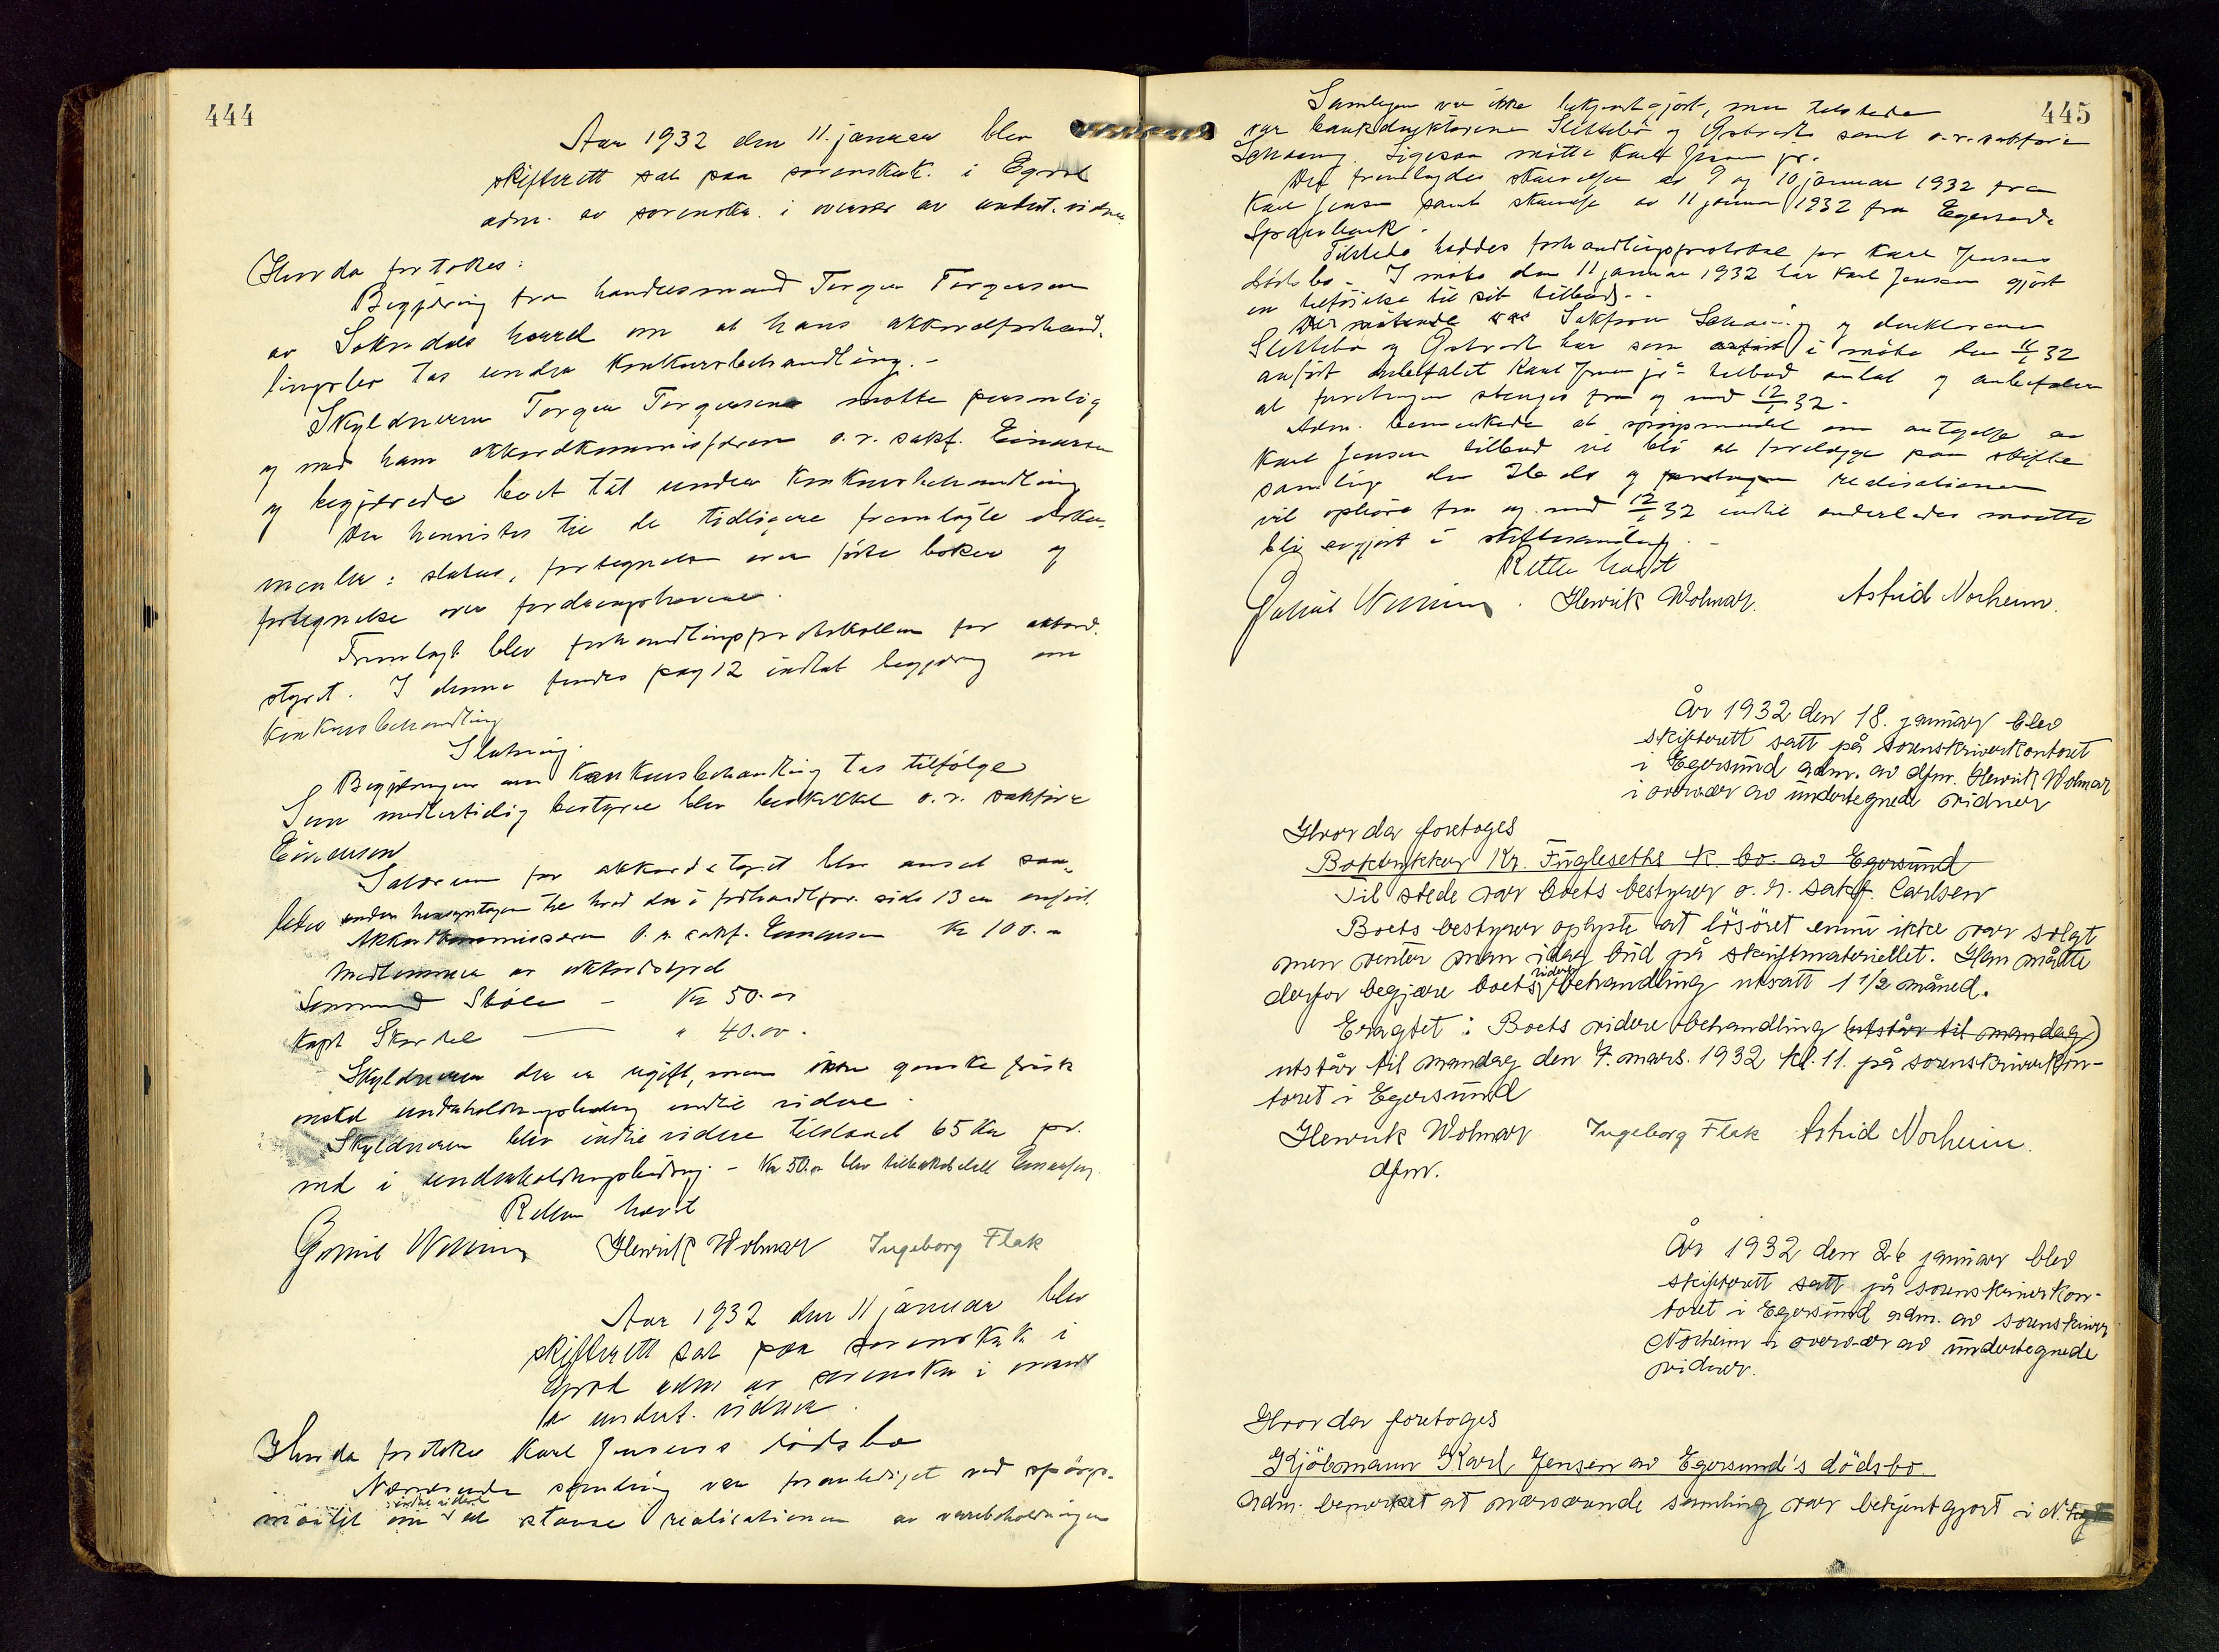 444
Aar 1932 den 11. januar blev
skifterett sat paa sorenskk. i Egrsd
adm. av sorenskr. i overvær av undert. vidner
Hvor da foretokes:
Begjæring fra handelsmand Torger Torgersen
av Sokndals herred om at hans akkordforhand-
lingsbo tas under konkursbehandling.-
Skyldneren Torger Torgersen møtte personlig
og med ham akkordkommissæren o.r. sakf. Einarsen
og begjærede boet tat under konkursbehandling
Der henvistes til de tidligere fremlagte doku-
menter: status, fortegnelse over førte bøker og
fortegnelse over fordringshavere.
Fremlagt blev forhandlingsprotokollen for akkord-
styret. I denne findes pag 12 indtat begjæring om
Konkursbehandling
Slutning.
Begjæringen om konkursbehandling tas tilfølge
Som midlertidig bestyrer blev beskikket o.r. sakfører
Einarsen
Salærene for akkordstyret blev ansat saa-
ledes under hensyntagen til hvad der i forhandlpr. side 13 er anført.
Akkordkommissæren o.r. sakf. Einarsen Kr 100.-
Medlemmer av akkordstyret
Stöle - Kr 50.00
Kapt - " 40.00.
Skyldneren der er ugift, men ikke ganske frisk
underholdningsbidrag indtil videre.
Skyldneren blev indtil videre tilstaaet 65 Kr pr.
md i underholdningsbidrag. - Kr 50.00 blev tilbakebetalt Einarsen.
Retten hævet
Henrik Wolmar Ingeborg Flak
Aar 1932 den 11 januar blev
skifterett sat paa sorenskr.k. i
Egrsd adm av sorenskr. i overvær
av undert. vidner.
Hvor da foretokes Karl Jensens dødsbo
Nærværende samling var foranlediget ved spørgs-
maalet om indtil videre at stanse realisationen av varebeholdningen
445
Samlingen var ikke bekjentgjort, men tilstede
var bankdirektørene Slettebö og samt o.r. sakfører
Schaanng. Ligesaa møtte Karl Jensen jr.
Det fremlagdes skrivelser av 9 og 10 januar 1932 fra
Karl Jensen samt skrivelse av 11 januar 1932 fra Egersunds
Sparebank.
Tilstede haddes forhandlingsprotokol for Karl Jensens
dödsbo. I møte den 11 januar 1932 har Karl Jensen gjort
en tilföielse til sit tilbud.-
Sakfører og direktørene
Slettebö og har som i möte den 11/1 32
anført anbefalet Karl Jensen jr's tilbud antat og anbefaler
at forretningen stenges fra og med 12/1 32.
Adm. bemerkede at spørsmaalet om antagelse av
Karl Jensen tilbud vil bli at forelægge paa skifte
samling den 26 ds og realisationen
vil ophøre fra og med 12/1 32 indtil anderledes maatte
bli avgjort i skiftesamling.-
Retten hævet
Henrik Wolmar. Astrid Norheim.
År 1932 den 18. januar blev
skifterett satt på sorenskriverkontoret
i Egersund adm. av dfm. Henrik Wolmar
i overvær av undertegnede vidner
Hvor da foretoges
Boktrykker Kr. Fugleseths k. bo. av Egersund
Til stede var boets bestyrer o. r. sakf. Carlsen
Boets bestyrer oplyste at lösöret ennu ikke var solgt
men venter man idag bud på skriftmateriellet. Han måtte
derfor begjære boets videre behandling utsatt 1 1/2 måned.
Eragtet: Boets videre behandling (utstår til mandag)
utstår til mandag den 7. mars. 1932 kl. 11. på sorenskriverkon-
toret i Egersund
Henrik Wolmar Ingeborg Flak Astrid Norheim.
dfm.
År 1932 den 26 januar blev
skifterett satt på sorenskriverkon-
toret i Egersund adm. av sorenskriver
Norheim i overvær av undertegnede
vidner.
Hvor da foretoges
Kjöbmann Karl Jensen av Egersund's dödsbo.
Adm. bemerket at nærværende samling var bekjentgjort i N.